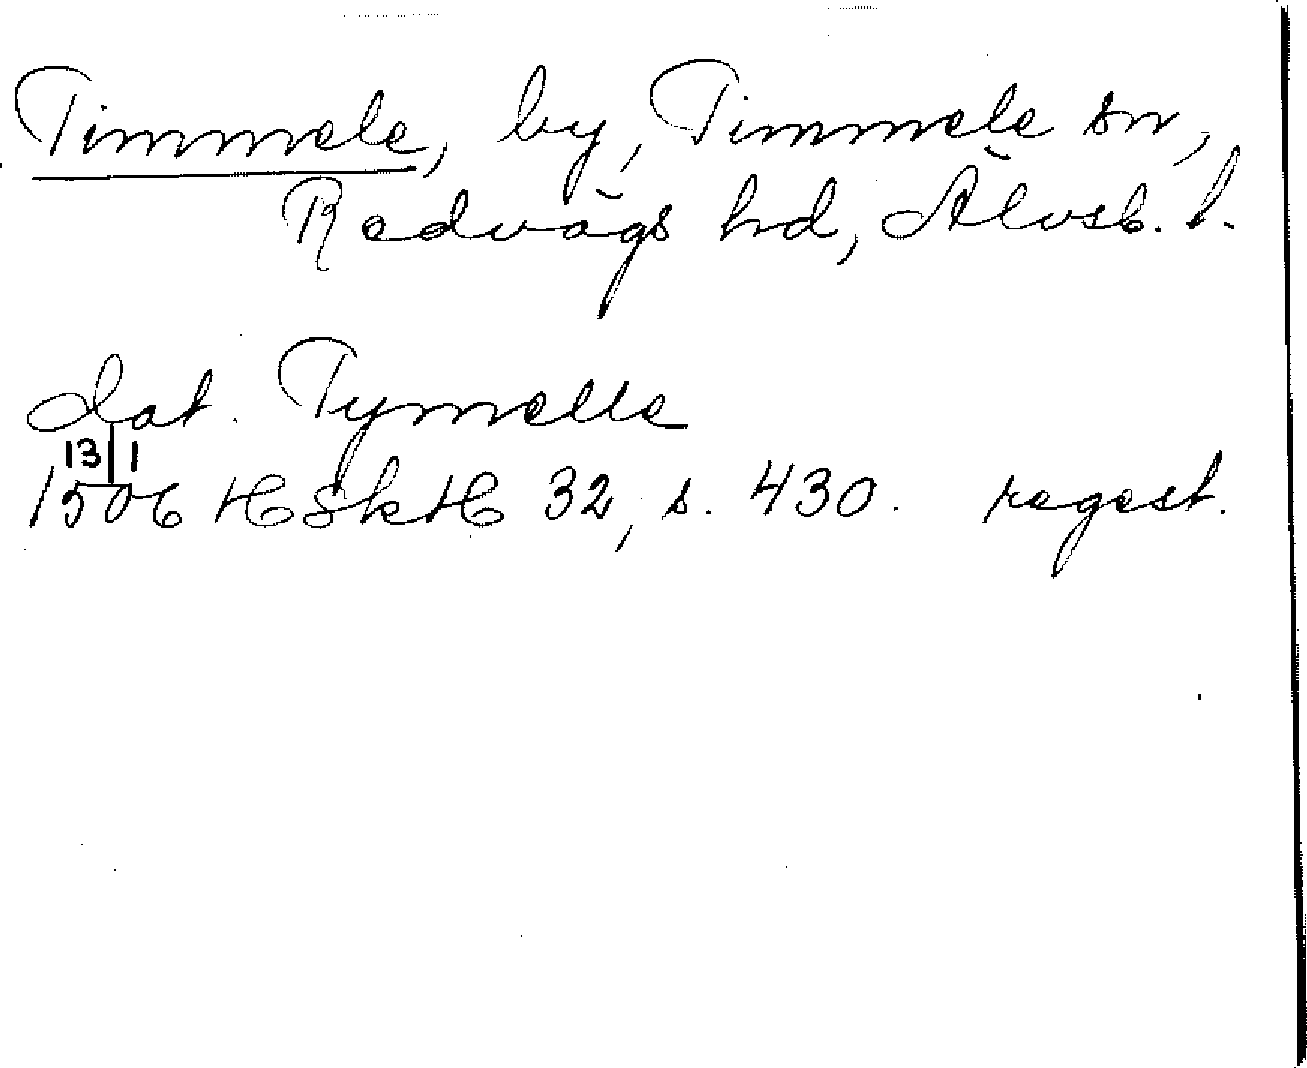 Timmele, by, Timmele sn,
Redvägs hd, Älvsb. l.
dat. Tymelle
13 1
1506 HSkH 32, s. 430. regest.